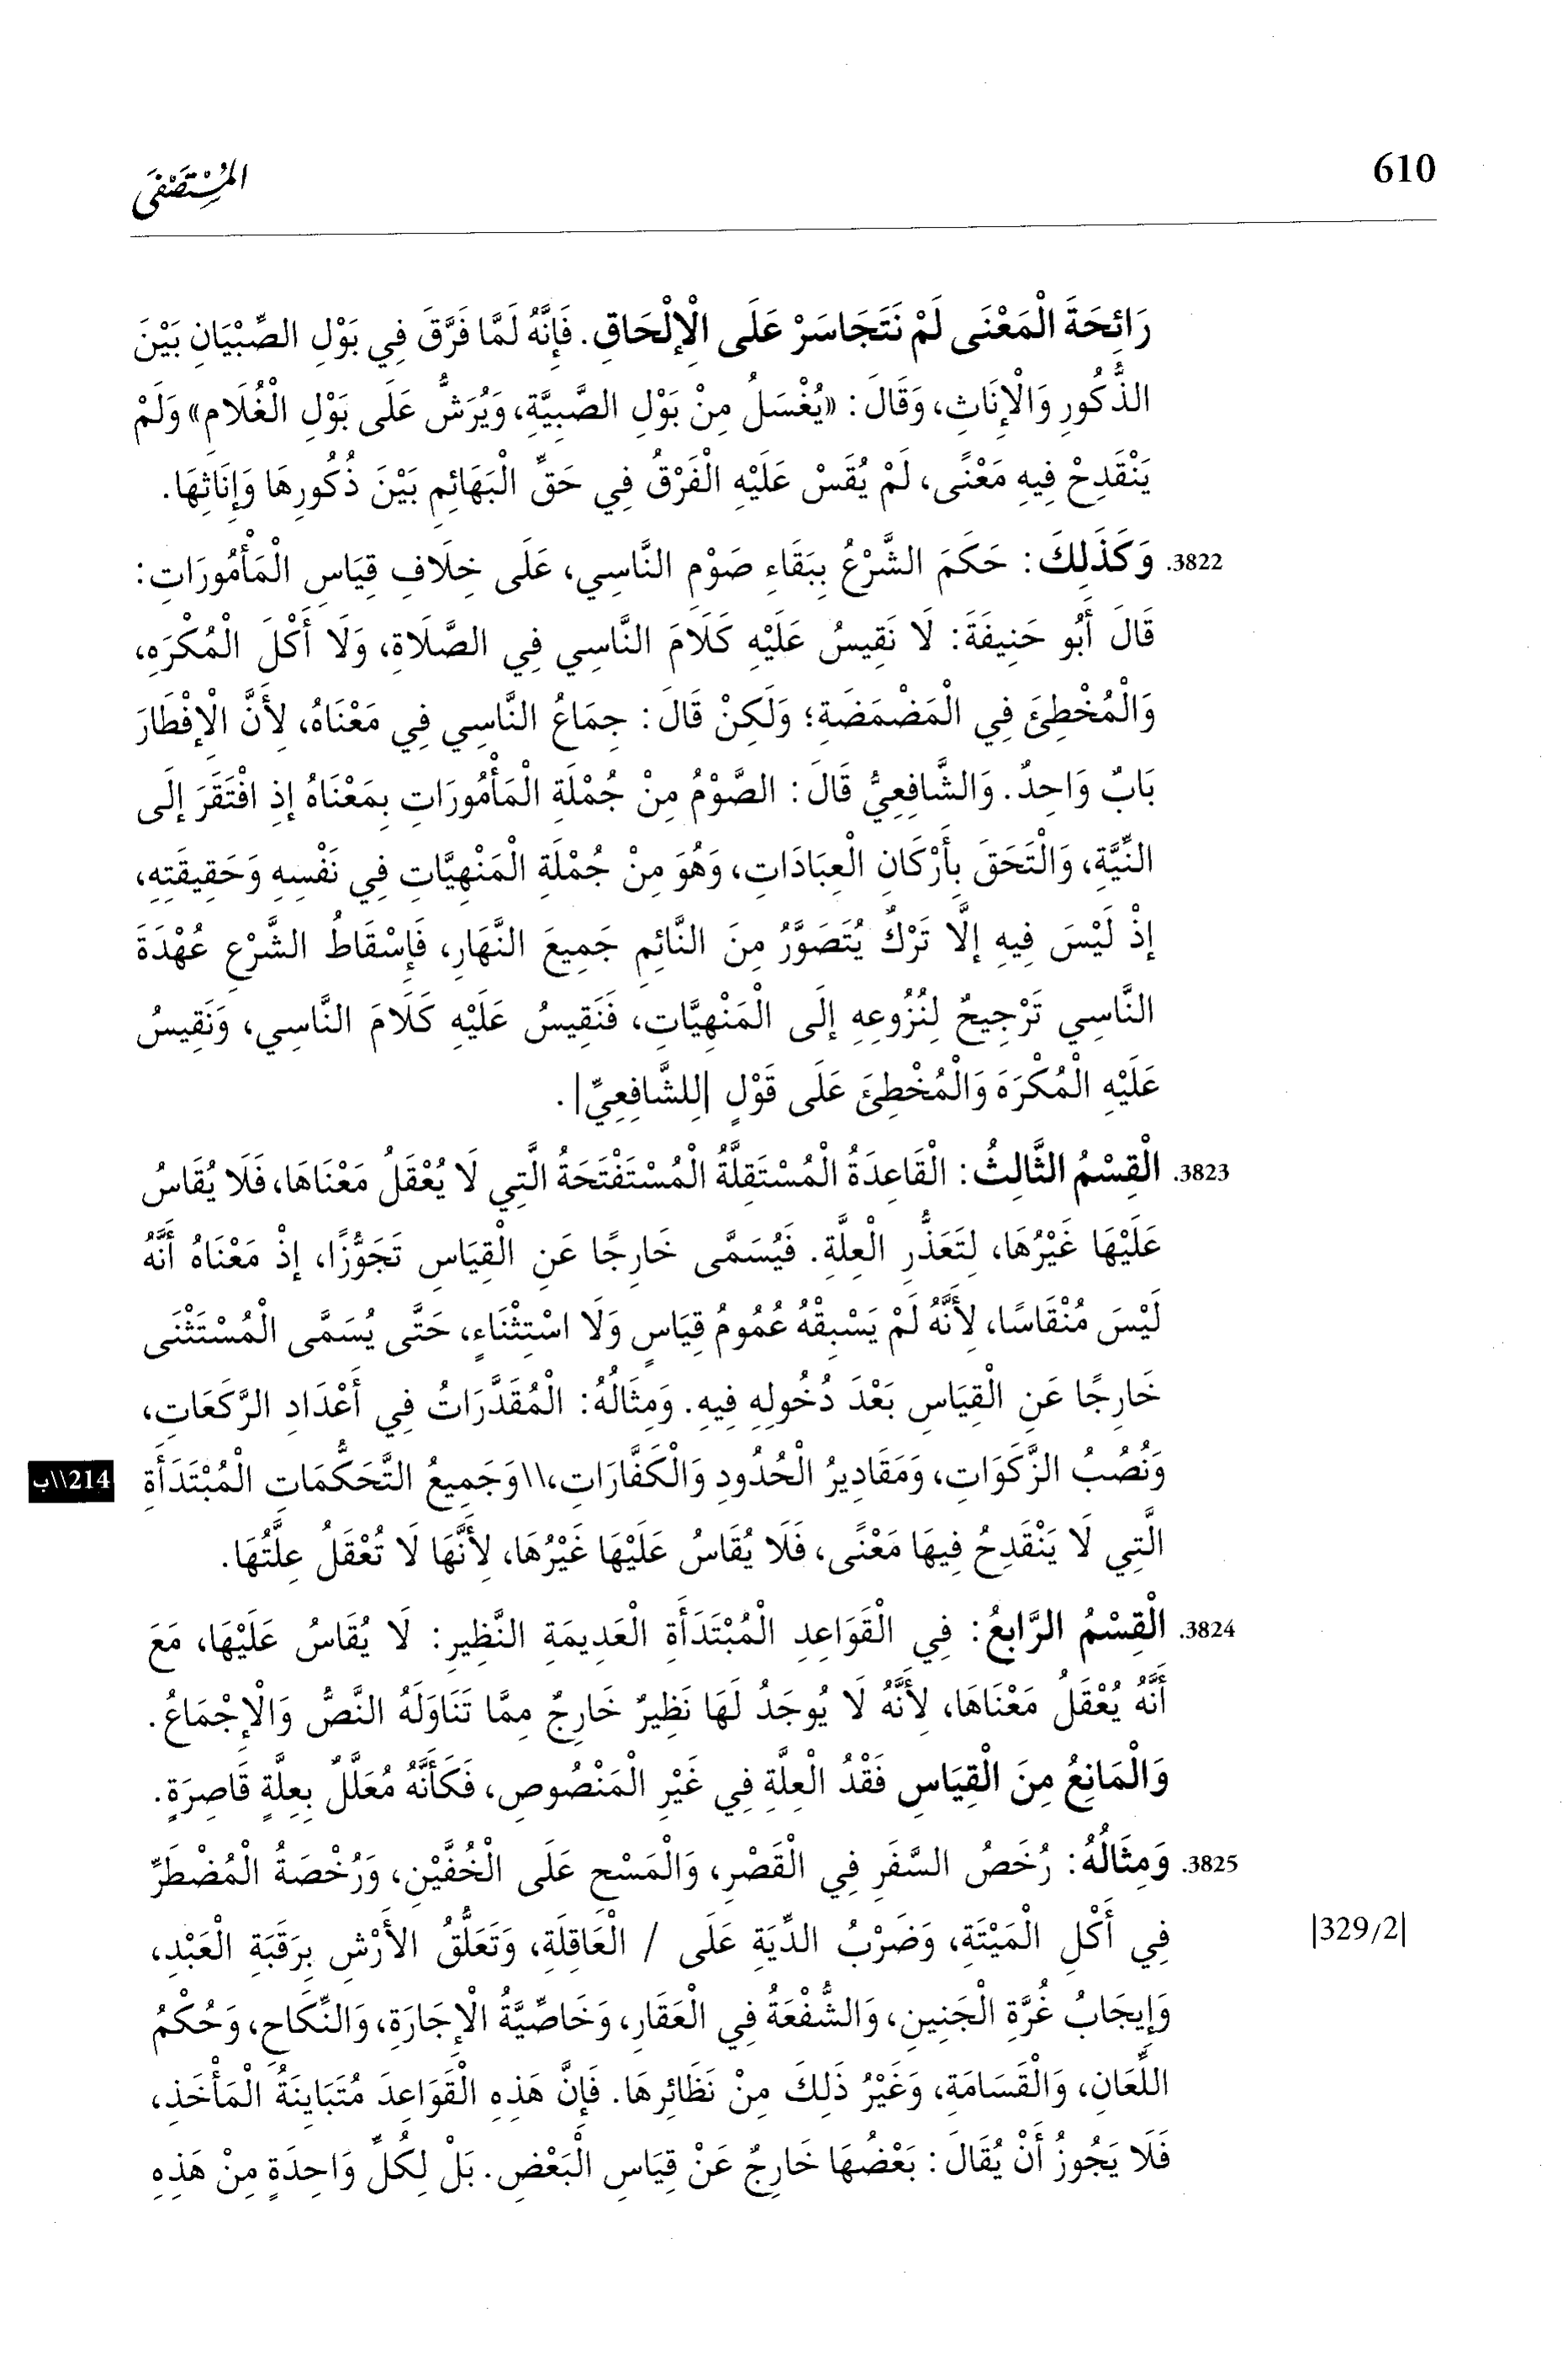 610
المُسْتَصْفَى
رَائِحَةَ الْمَعْنَى لَمْ نَتَجَاسَرْ عَلَى الْإِلْحَاقِ. فَإِنَّهُ لَمَّا فَرَّقَ فِي بَوْلِ الصِّبْيَانِ بَيْنَ
الذُّكُورِ وَالْإِنَاثِ، وَقَالَ: «يُغْسَلُ مِنْ بَوْلِ الصَّبِيَّةِ، وَيُرَشُّ عَلَى بَوْلِ الْغُلَامِ» وَلَمْ
يَنْقَدِحْ فِيهِ مَعْنًى، لَمْ يُقَسْ عَلَيْهِ الْفَرْقُ فِي حَقِّ الْبَهَائِمِ بَيْنَ ذُكُورِهَا وَإِنَاثِهَا.
3822. وَكَذَلِكَ: حَكَمَ الشَّرْعُ بِبَقَاءِ صَوْمِ النَّاسِي، عَلَى خِلَافِ قِيَاسِ الْمَأْمُورَاتِ:
قَالَ أَبُو حَنِيفَةَ: لَا نَقِيسُ عَلَيْهِ كَلَامَ النَّاسِي فِي الصَّلَاةِ، وَلَا أَكْلَ الْمُكْرَهِ،
وَالْمُخْطِئَ فِي الْمَضْمَضَةِ؛ وَلَكِنْ قَالَ: جِمَاعُ النَّاسِي فِي مَعْنَاهُ، لِأَنَّ الْإِفْطَارَ
بَابٌ وَاحِدٌ. وَالشَّافِعِيُّ قَالَ: الصَّوْمُ مِنْ جُمْلَةِ الْمَأْمُورَاتِ بِمَعْنَاهُ إِذِ افْتَقَرَ إِلَى
النِّيَّةِ، وَالْتَحَقَ بِأَرْكَانِ الْعِبَادَاتِ، وَهُوَ مِنْ جُمْلَةِ الْمَنْهِيَّاتِ فِي نَفْسِهِ وَحَقِيقَتِهِ،
إِذْ لَيْسَ فِيهِ إِلَّا تَرْكٌ يُتَصَوَّرُ مِنَ النَّائِمِ جَمِيعَ النَّهَارِ، فَإِسْقَاطُ الشَّرْعِ عُهْدَةَ
النَّاسِي تَرْجِيحٌ لِنُزُوعِهِ إِلَى الْمَنْهِيَّاتِ، فَنَقِيسُ عَلَيْهِ كَلَامَ النَّاسِي، وَنَقِيسُ
عَلَيْهِ الْمُكْرَهَ وَالْمُخْطِئَ عَلَى قَوْلٍ |لِلشَّافِعِيِّ|.
3823. الْقِسْمُ الثَّالِثُ: الْقَاعِدَةُ الْمُسْتَقِلَّةُ الْمُسْتَفْتَحَةُ الَّتِي لَا يُعْقَلُ مَعْنَاهَا، فَلَا يُقَاسُ
عَلَيْهَا غَيْرُهَا، لِتَعَذُّرِ الْعِلَّةِ. فَيُسَمَّى خَارِجًا عَنِ الْقِيَاسِ تَجَوُّزًا، إِذْ مَعْنَاهُ أَنَّهُ
لَيْسَ مُنْقَاسًا، لِأَنَّهُ لَمْ يَسْبِقْهُ عُمُومُ قِيَاسٍ وَلَا اسْتِثْنَاءٍ، حَتَّى يُسَمَّى الْمُسْتَثْنَى
خَارِجًا عَنِ الْقِيَاسِ بَعْدَ دُخُولِهِ فِيهِ. وَمِثَالُهُ: الْمُقَدَّرَاتُ فِي أَعْدَادِ الرَّكَعَاتِ،
وَنُصُبُ الزَّكَوَاتِ، وَمَقَادِيرُ الْحُدُودِ وَالْكَفَّارَاتِ،\\وَجَمِيعُ التَّحَكُّمَاتِ الْمُبْتَدَأَةِ
214\\ب
الَّتِي لَا يَنْقَدِحُ فِيهَا مَعْنًى، فَلَا يُقَاسُ عَلَيْهَا غَيْرُهَا، لِأَنَّهَا لَا تُعْقَلُ عِلَّتُهَا.
3824. الْقِسْمُ الرَّابِعُ: فِي الْقَوَاعِدِ الْمُبْتَدَأَةِ الْعَدِيمَةِ النَّظِيرِ: لَا يُقَاسُ عَلَيْهَا، مَعَ
أَنَّهُ يُعْقَلُ مَعْنَاهَا، لِأَنَّهُ لَا يُوجَدُ لَهَا نَظِيرٌ خَارِجٌ مِمَّا تَنَاوَلَهُ النَّصُّ وَالْإِجْمَاعُ.
وَالْمَانِعُ مِنَ الْقِيَاسِ فَقْدُ الْعِلَّةِ فِي غَيْرِ الْمَنْصُوصِ، فَكَأَنَّهُ مُعَلَّلٌ بِعِلَّةٍ قَاصِرَةٍ.
3825. وَمِثَالُهُ: رُخَصُ السَّفَرِ فِي الْقَصْرِ، وَالْمَسْحِ عَلَى الْخُفَّيْنِ، وَرُخْصَةُ الْمُضْطَرِّ
فِي أَكْلِ الْمَيْتَةِ، وَضَرْبُ الدِّيَةِ عَلَى / الْعَاقِلَةِ، وَتَعَلُّقُ الأَرْشِ بِرَقَبَةِ الْعَبْدِ،
|329/2|
وَإِيجَابُ غُرَّةِ الْجَنِينِ، وَالشُّفْعَةُ فِي الْعَقَارِ، وَخَاصِّيَّةُ الْإِجَارَةِ، وَالنِّكَاحِ، وَحُكْمُ
اللِّعَانِ، وَالْقَسَامَةِ، وَغَيْرُ ذَلِكَ مِنْ نَظَائِرِهَا. فَإِنَّ هَذِهِ الْقَوَاعِدَ مُتَبَايِنَةُ الْمَأْخَذِ،
فَلَا يَجُوزُ أَنْ يُقَالَ: بَعْضُهَا خَارِجٌ عَنْ قِيَاسِ الْبَعْضِ. بَلْ لِكُلِّ وَاحِدَةٍ مِنْ هَذِهِ